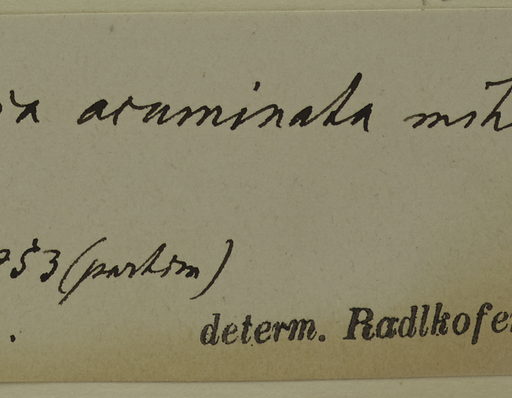 acuminata mih
53 (partim)
determ. Radlkofer